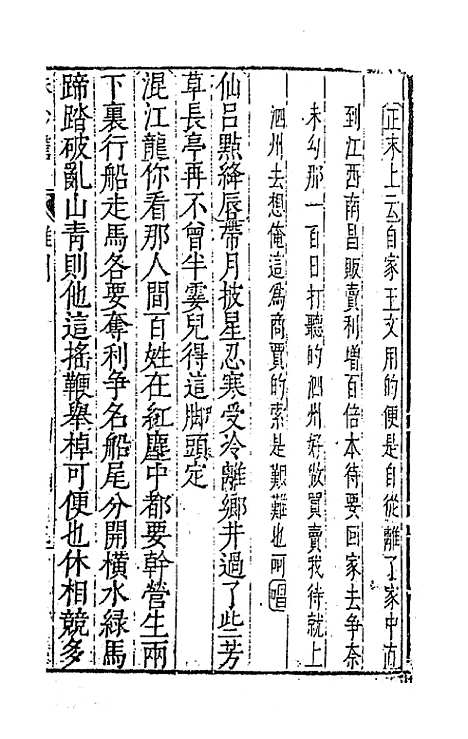 正末上云自家王文用的便是自從離了家中直
到江西南昌販賣利增百倍本待要回家去爭奈
未勾那一百日打聽的泗州好做買賣我待就上
泗州去想俺這為商賈的索是艱難也呵唱
仙呂點絳唇帶月披星忍寒受冷離鄉井過了些芳
草長亭再不曾半霎兒得這脚頭定
混江龍你看那人間百姓在紅塵中都要幹營生兩
下裏行船走馬各要奪利爭名船尾分開橫水綠馬
蹄踏破亂山青則他這搖鞭舉棹可便也休相競多